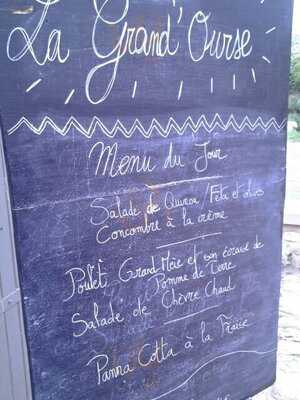 La Grand'Ourse
Menu du Jour
Salade de Quinoa / Feta et olives
Concombre à la crème
Poulet Grand Mère et son écrasé de
Pomme de Terre
Salade de Chèvre Chaud
Panna Cotta à la Fraise